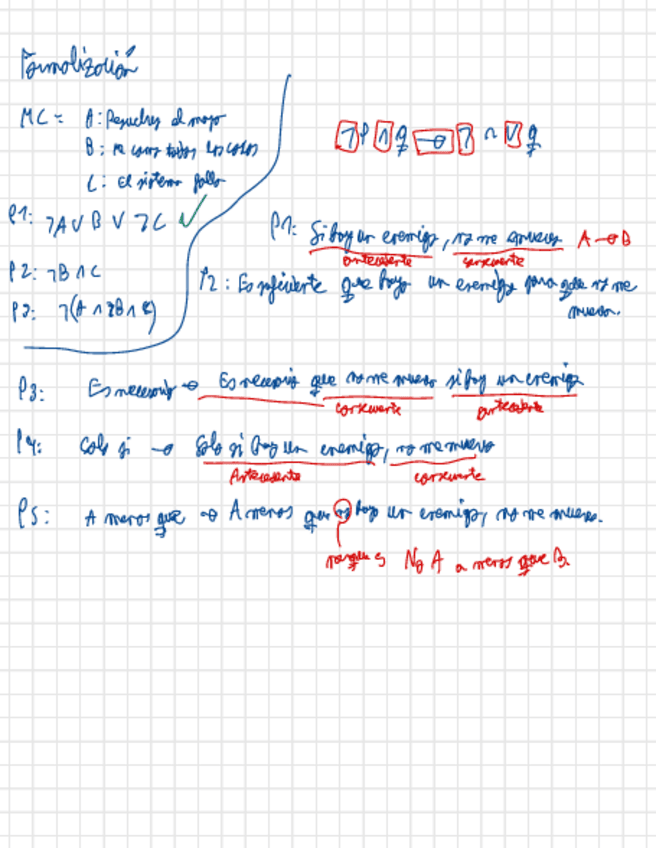 Formalización
MC = A: Resuelves el mapa
B: se cans todos los casos
C: El sistema falla
P1: ¬A ∨ B ∨ ¬C ✓
P2: ¬B ∧ C
P3: ¬(A ∧ ¬B ∧ C)
¬p ∧ q → ¬ r ∨ q
P1: Si hay un enemigo, no me muevo A → B
antecedente consecuente
P2: Es suficiente que haya un enemigo para que no me
mueva.
P3: Es necesario → Es necesario que no me mueva si hay un enemigo
consecuente antecedente
P4: Solo si → Solo si hay un enemigo, no me muevo
Antecedente consecuente
P5: A menos que → A menos que no haya un enemigo, no me muevo.
porque es No A a menos que B.